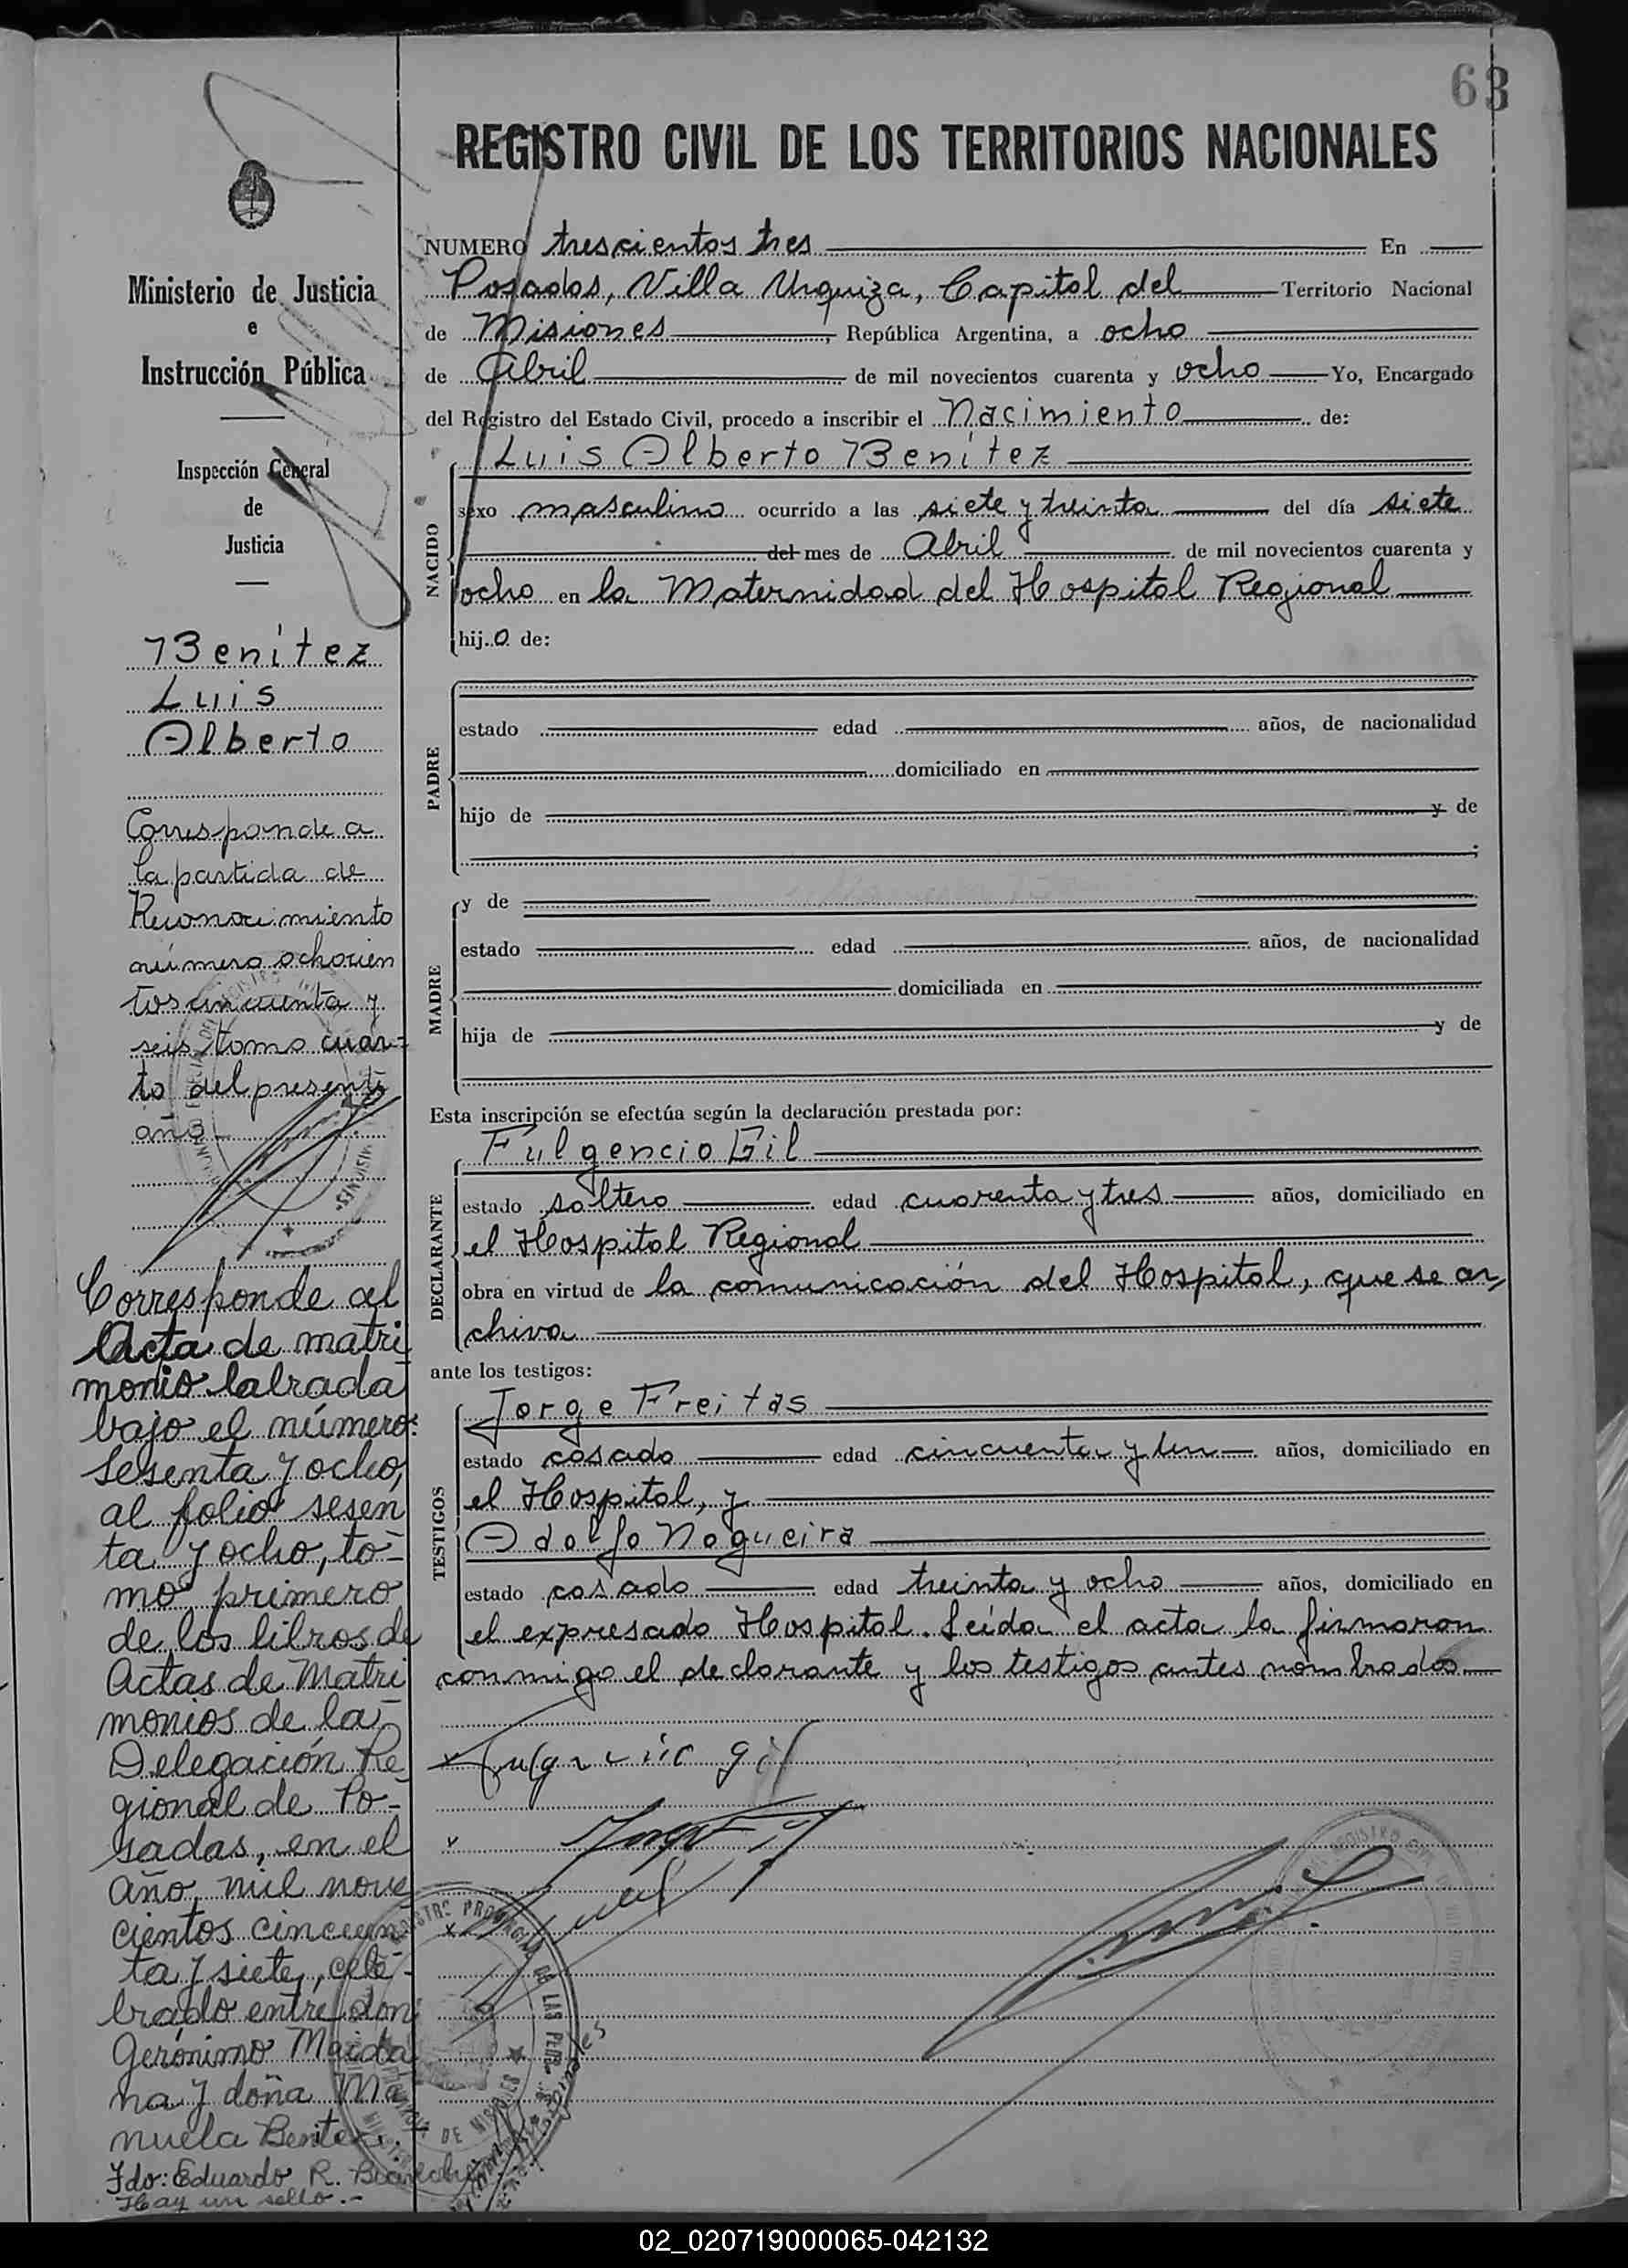 63
REGISTRO CIVIL DE LOS TERRITORIOS NACIONALES
Ministerio de Justicia
e
Instrucción Pública
Inspección General
de
Justicia
Benítez
Luis
Alberto
Corresponde a
la partida de
Reconocimiento
número ochocien
tos cincuenta y
seis tomo cuar-
to del presente
año
Corresponde al
Acta de matri
monio labrada
bajo el número:
Sesenta y ocho,
al folio sesen
ta y ocho, to-
mo primero
de los libros de
Actas de Matri
monios de la
Delegación Re
gional de Po-
sadas, en el
año, mil nove
cientos cincuen
ta y siete, cele-
brado entre don
Gerónimo Maida
na y doña Ma
nuela Benitez.
Fdo: Eduardo R.
Hay un sello.-
NUMERO trescientos tres En
Posadas, Villa Urquiza, Capital del Territorio Nacional
de Misiones, República Argentina, a ocho
de Abril de mil novecientos cuarenta y ocho Yo, Encargado
del Registro del Estado Civil, procedo a inscribir el Nacimiento de:
Luis Alberto Benítez
NACIDO
sexo masculino ocurrido a las siete y treinta del día siete
del mes de Abril de mil novecientos cuarenta y
ocho en la Maternidad del Hospital Regional
hijo de:
PADRE
estado edad años, de nacionalidad
domiciliado en
hijo de y de
;
MADRE
y de
estado edad años, de nacionalidad
domiciliada en
hija de y de
Esta inscripción se efectúa según la declaración prestada por:
DECLARANTE
Fulgencio Gil
estado soltero edad cuarenta y tres años, domiciliado en
el Hospital Regional
obra en virtud de la comunicación del Hospital, que se ar
chiva
ante los testigos:
TESTIGOS
Jorge Freitas
estado casado edad cincuenta y un años, domiciliado en
el Hospital, y
Adolfo Nogueira
estado casado edad treinta y ocho años, domiciliado en
el expresado Hospital. Leída el acta la firmaron
conmigo el declarante y los testigos antes nombrados
Fulgencio Gil
02_020719000065-042132